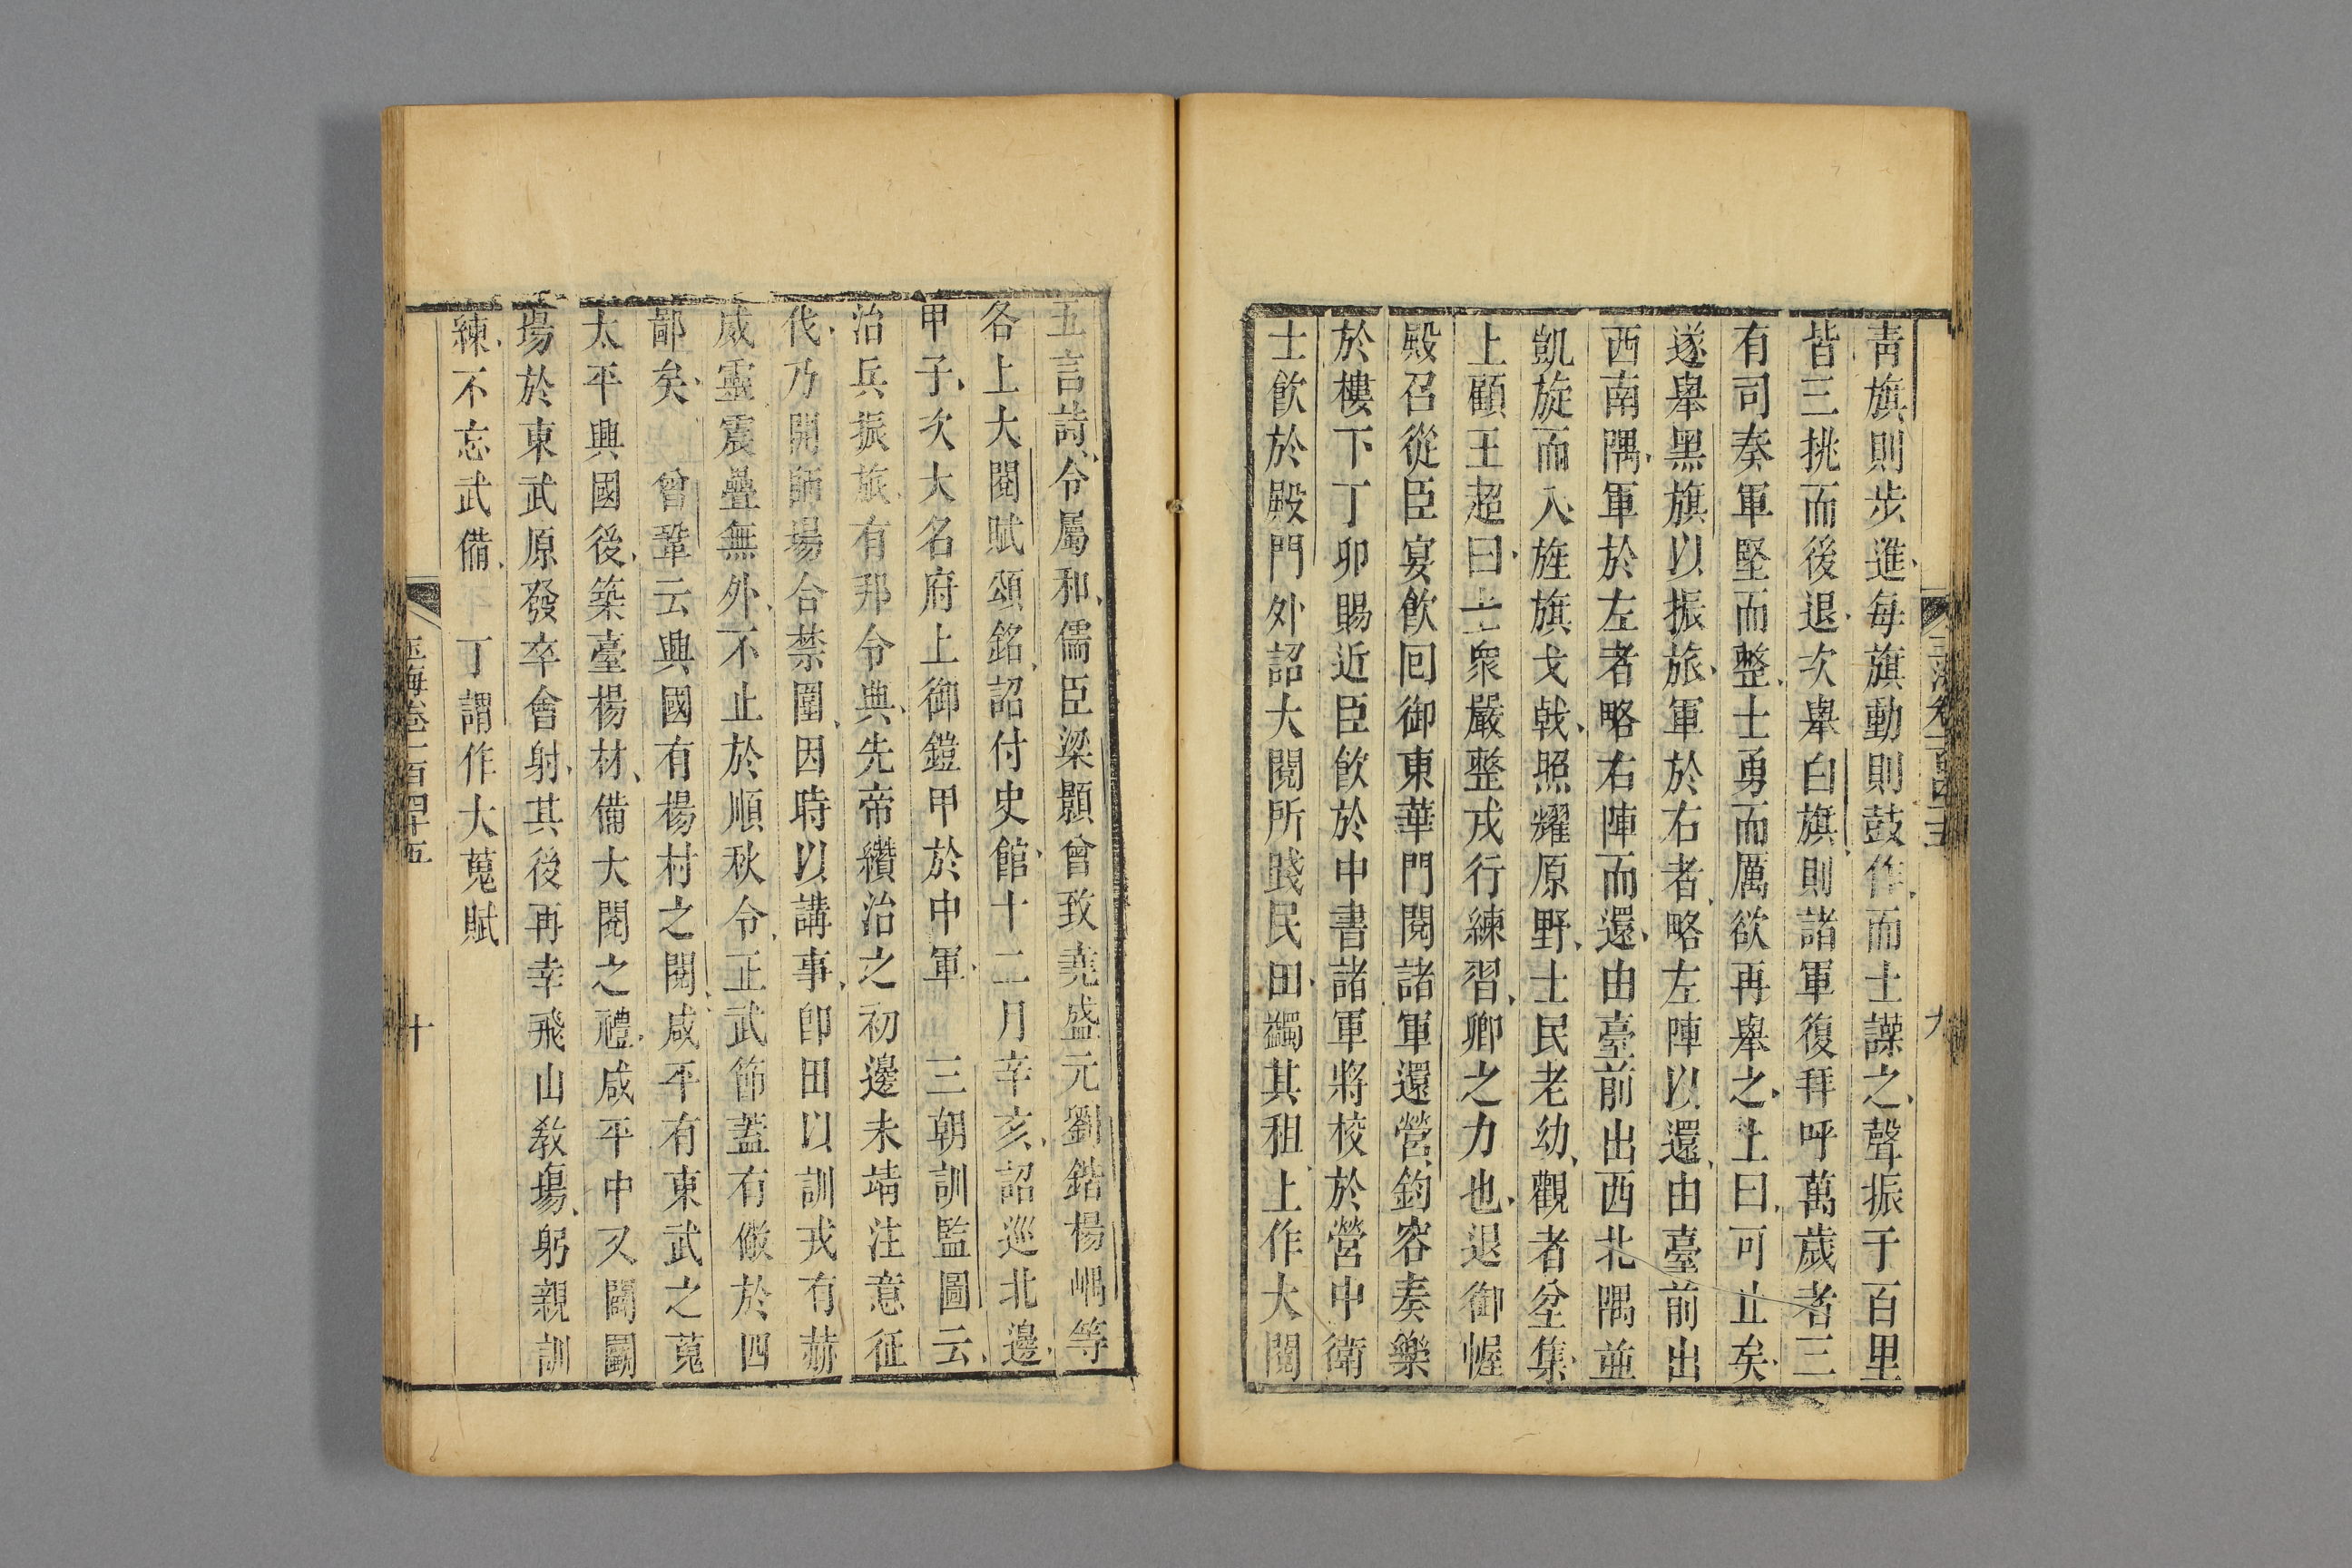 青旗則步進每旗動則鼓作而士譟之聲振于百里
皆三挑而後退次舉白旗則諸軍復拜呼萬歲者三
有司奏軍堅而整士勇而厲欲再舉之上曰可止矣
遂舉黑旗以振旅軍於右者略左陣以還由臺前出
西南隅軍於左者略右陣而還由臺前出西北隅並
凱旋而入旌旗戈戟照耀原野士民老幼觀者坌集
上顧王超曰士衆嚴整戎行練習卿之力也退御幄
殿召從臣宴飲回御東華門閱諸軍還營鈞容奏樂
於樓下丁卯賜近臣飲於中書諸軍將校於營中衛
士飲於殿門外詔大閱所踐民田蠲其租上作大閱
五言詩令屬和儒臣梁顥曾致堯盛元劉鍇楊嵎等
各上大閱賦頌銘詔付史館十二月辛亥詔巡北邊
甲子次大名府上御鎧甲於中軍　三朝訓監圖云
治兵振旅有邦令典先帝纘治之初邊未靖注意征
伐乃開師場合禁圍因時以講事卽田以訓戎有赫
威靈震疊無外不止於順秋令正武節蓋有儆於四
鄙矣　曾鞏云興國有楊村之閱咸平有東武之蒐
太平興國後築臺楊村備大閱之禮咸平中又闢圖
場於東武原發卒會射其後再幸飛山教場躬親訓
練不忘武備　丁謂作大蒐賦
玉海卷一百四十五
十